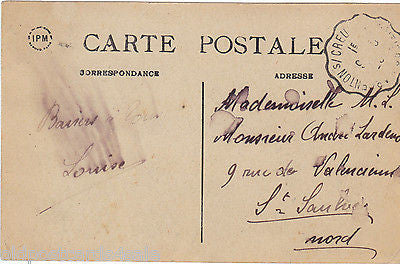 IPM
CARTE POSTALE
CORRESPONDANCE
ADRESSE
Baisers à tous
Louise
Mademoiselle M. L.
Monsieur André
9 rue de Valencien
St Saulve
Nord